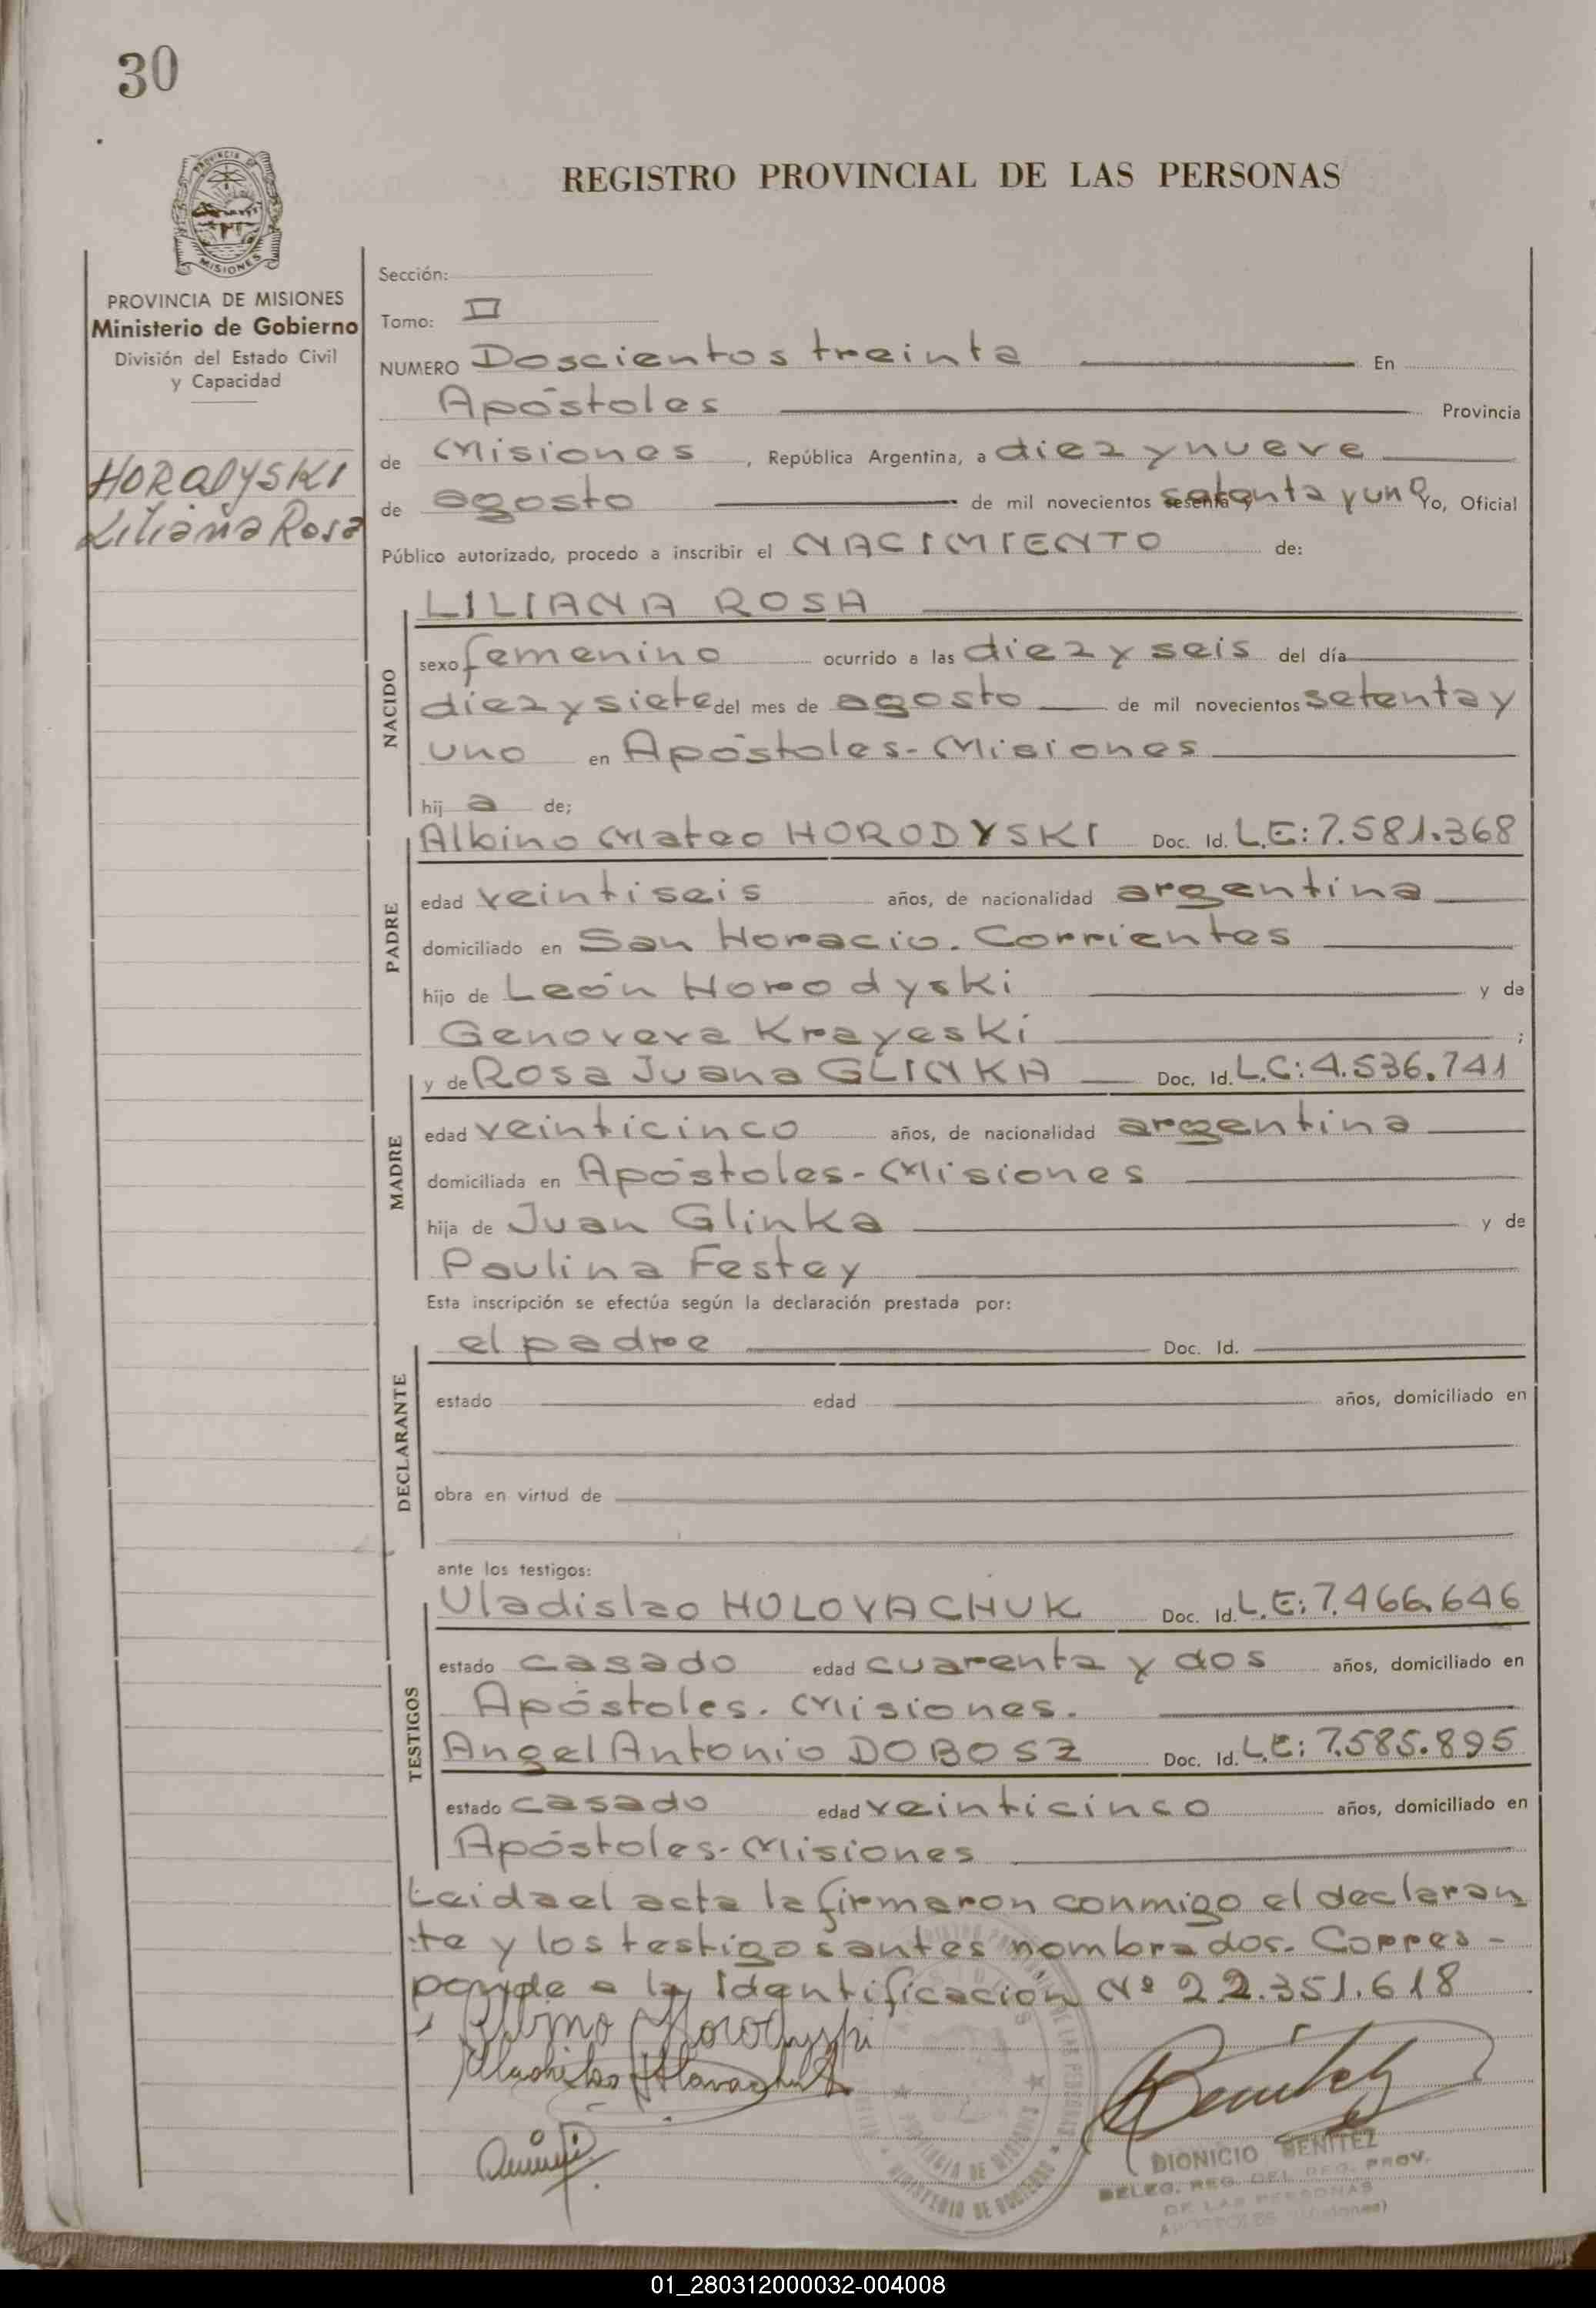 30
REGISTRO PROVINCIAL DE LAS PERSONAS
PROVINCIA DE MISIONES
MISIONES
PROVINCIA DE MISIONES
Ministerio de Gobierno
División del Estado Civil
y Capacidad
HORODYSKI
Liliana Rosa
Sección:
Tomo: II
NUMERO Doscientos treinta En
Apóstoles Provincia
de Misiones, República Argentina, a diez y nueve
de agosto de mil novecientos sesenta y setenta y uno Yo, Oficial
Público autorizado, procedo a inscribir el NACIMIENTO de:
LILIANA ROSA
NACIDO
sexo femenino ocurrido a las diez y seis del día
diez y siete del mes de agosto de mil novecientos setenta y
uno en Apóstoles-Misiones
hij a de;
PADRE
Albino Mateo HORODYSKI Doc. Id. L.E:7.581.368
edad veintiseis años, de nacionalidad argentina
domiciliado en San Horacio. Corrientes
hijo de León Horodyski y de
Genoveva Krayeski ;
MADRE
y de Rosa Juana GLINKA Doc. Id. L.C:4.536.741
edad veinticinco años, de nacionalidad argentina
domiciliada en Apóstoles-Misiones
hija de Juan Glinka y de
Paulina Festey
Esta inscripción se efectúa según la declaración prestada por:
DECLARANTE
el padre Doc. Id.
estado edad años, domiciliado en
obra en virtud de
ante los testigos:
TESTIGOS
Uladislao HOLOVACHUK Doc. Id. L.E:7.466.646
estado casado edad cuarenta y dos años, domiciliado en
Apóstoles. Misiones.
Angel Antonio DOBOSZ Doc. Id. L.E: 7.585.895
estado casado edad veinticinco años, domiciliado en
Apóstoles-Misiones
Leida el acta la firmaron conmigo el declaran
te y los testigos antes nombrados. Corres-
ponde a la Identificación Nº 22.351.618
Albino Horodyski
Benitez
PROVINCIA DE MISIONES
MINISTERIO DE GOBIERNO
DIONICIO BENITEZ
DELEG. REG. DEL REG. PROV.
DE LAS PERSONAS
APOSTOLES (Misiones)
01_280312000032-004008